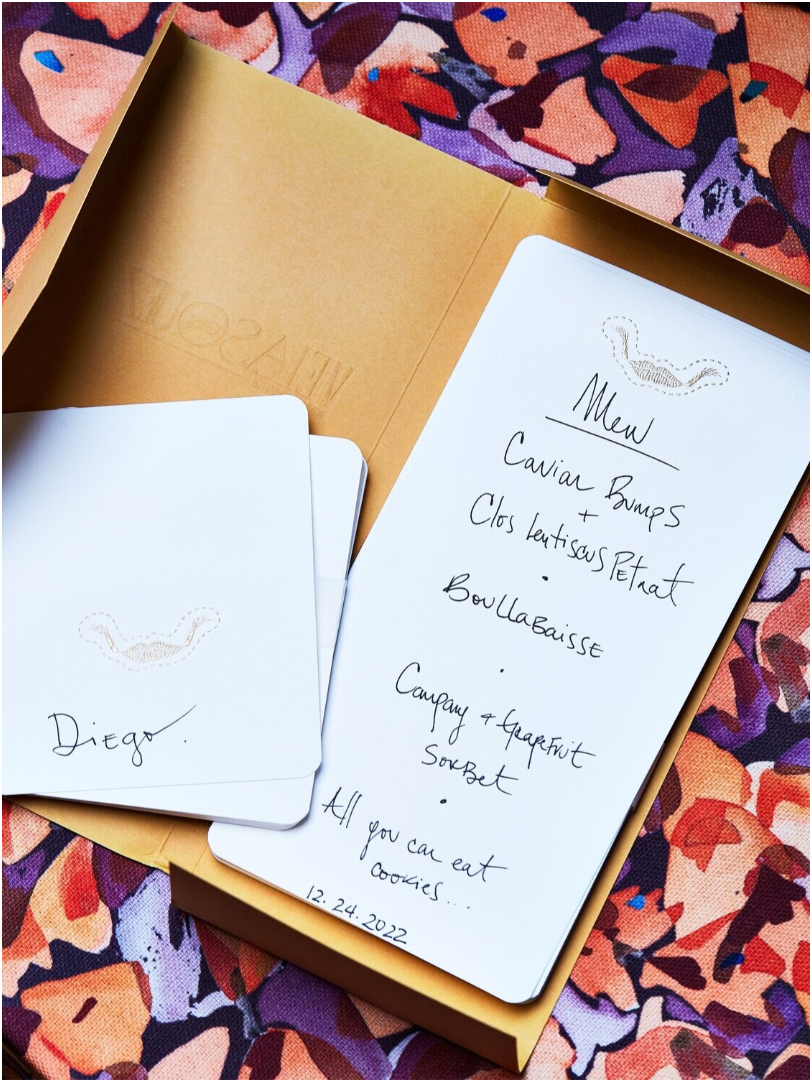 Menu
Caviar Bumps
+
Clos Lentiscus PEtnat
BouLLaBaissE
Campary + GrapEFruit
SorBet
All you can eat
cookies...
12.24.2022
Diego.